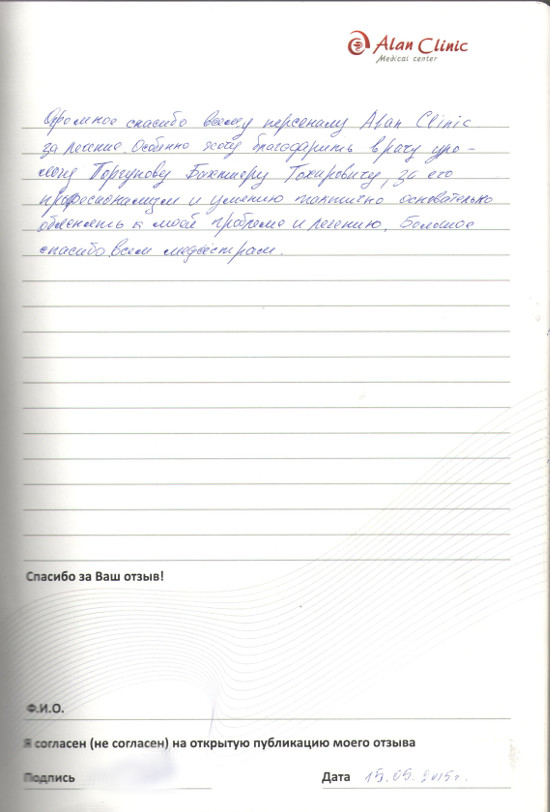 Alan Clinic
Medical center
Огромное спасибо всему персоналу Alan Clinic
за лечение. Особенно хочу благодарить врачу уро-
логу Тахировичу, за его
професионализм и умению тактично основательно
обяснять к моей и лечению. Большое
спасибо всем медсёстрам.
Спасибо за Ваш отзыв!
Ф.И.О.
Я согласен (не согласен) на открытую публикацию моего отзыва
Подпись
Дата 15.05.2015г.